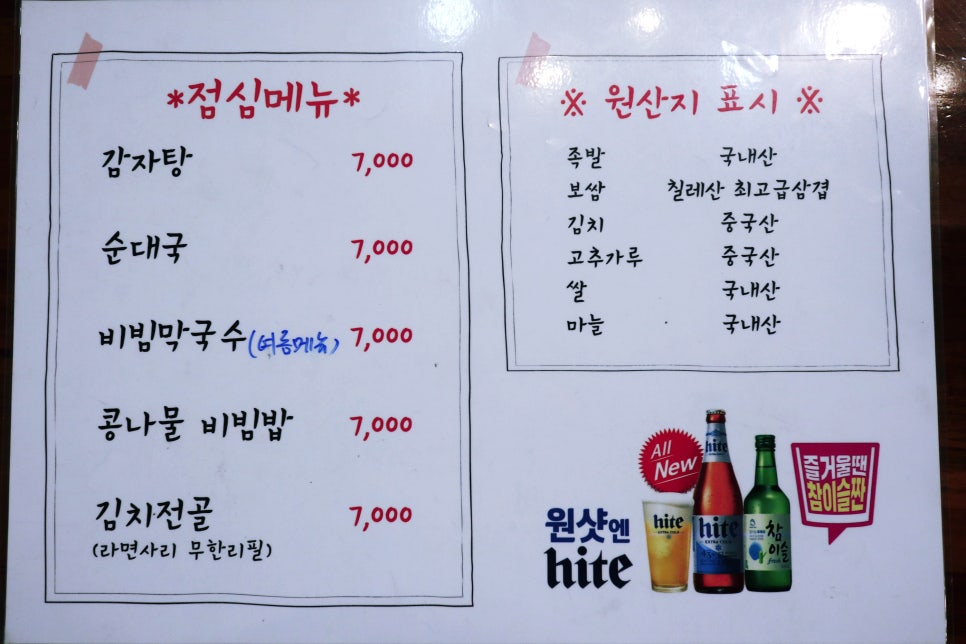 *점심메뉴*
감자탕 7,000
순대국 7,000
비빔막국수(여름메뉴) 7,000
콩나물 비빔밥 7,000
김치전골 7,000
(라면사리 무한리필)
※ 원산지 표시 ※
족발 국내산
보쌈 칠레산 최고급삼겹
김치 중국산
고추가루 중국산
쌀 국내산
마늘 국내산
All New
원샷엔
hite
hite
EXTRA COLD
hite
hite
EXTRA COLD
참이슬
fresh
즐거울땐
참이슬짠